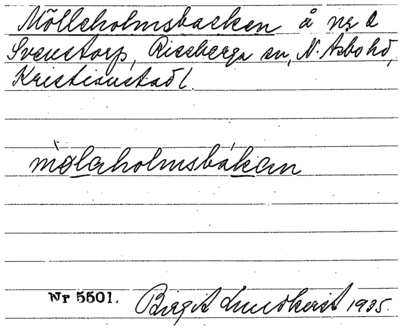 Mölleholmsbacken å nr 2
Svenstorp, Riseberga sn, N. Åsbo hd,
Kristianstad l.
mòlaholmsbákan
Nr 5501.
Birgit Lundkvist 1935.